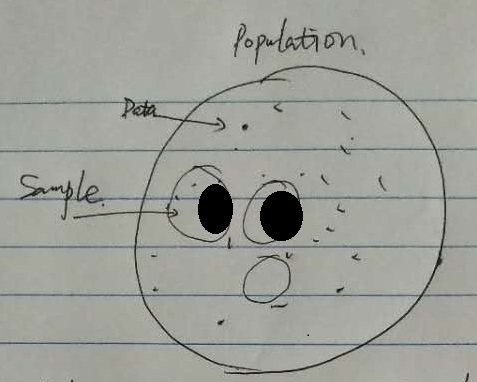 Population.
Data
Sample.